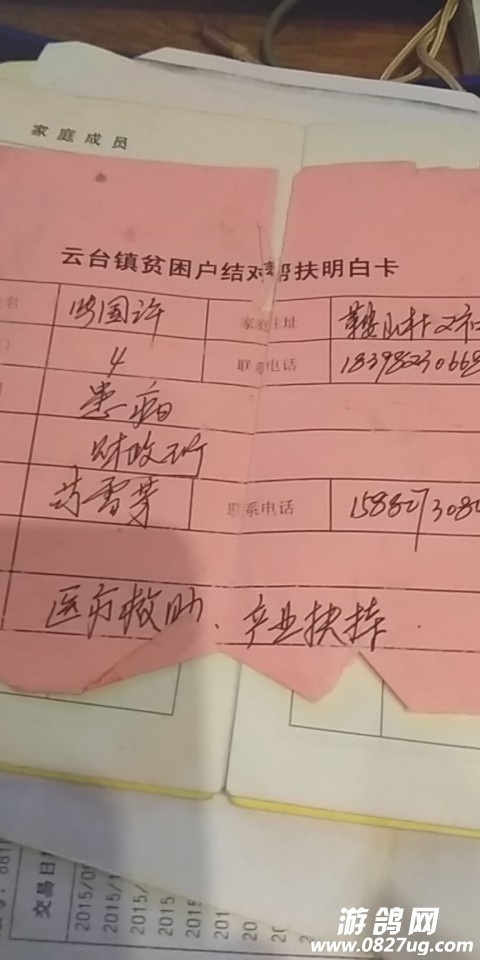 家庭成员
云台镇贫困户结对帮扶明白卡
名 国许 家庭住址 鞍山村2社
口 4 联系电话 1839823066
患病
财政所
苏雪芽 联系电话 15882730
医疗救助、产业扶持.
交易日
2015/0
2015/1
2015/
2015/
2015/
2015/
201
游鸽网
www.0827ug.com